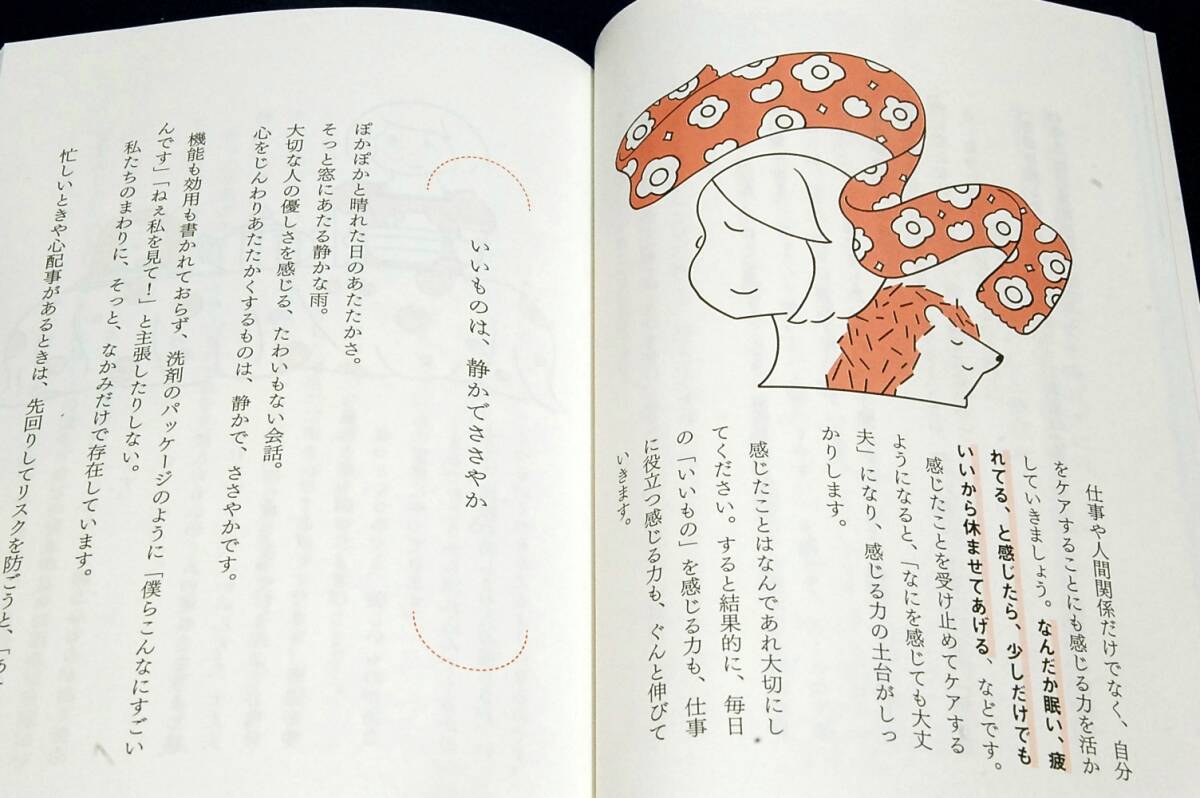 仕事や人間関係だけでなく、自分
をケアすることにも感じる力を活か
していきましょう。なんだか眠い、疲
れてる、と感じたら、少しだけでも
いいから休ませてあげる、などです。
感じたことを受け止めてケアする
ようになると、「なにを感じても大丈
夫」になり、感じる力の土台がしっ
かりします。
感じたことはなんであれ大切にし
てください。すると結果的に、毎日
の「いいもの」を感じる力も、仕事
に役立つ感じる力も、ぐんと伸びて
いきます。
いいものは、静かでささやか
ぽかぽかと晴れた日のあたたかさ。
そっと窓にあたる静かな雨。
大切な人の優しさを感じる、たわいもない会話。
心をじんわりあたたかくするものは、静かで、ささやかです。
機能も効用も書かれておらず、洗剤のパッケージのように「僕らこんなにすごい
んです」「ねぇ私を見て！」と主張したりしない。
私たちのまわりに、そっと、なかみだけで存在しています。
忙しいときや心配事があるときは、先回りしてリスクを防ごうと、「あ